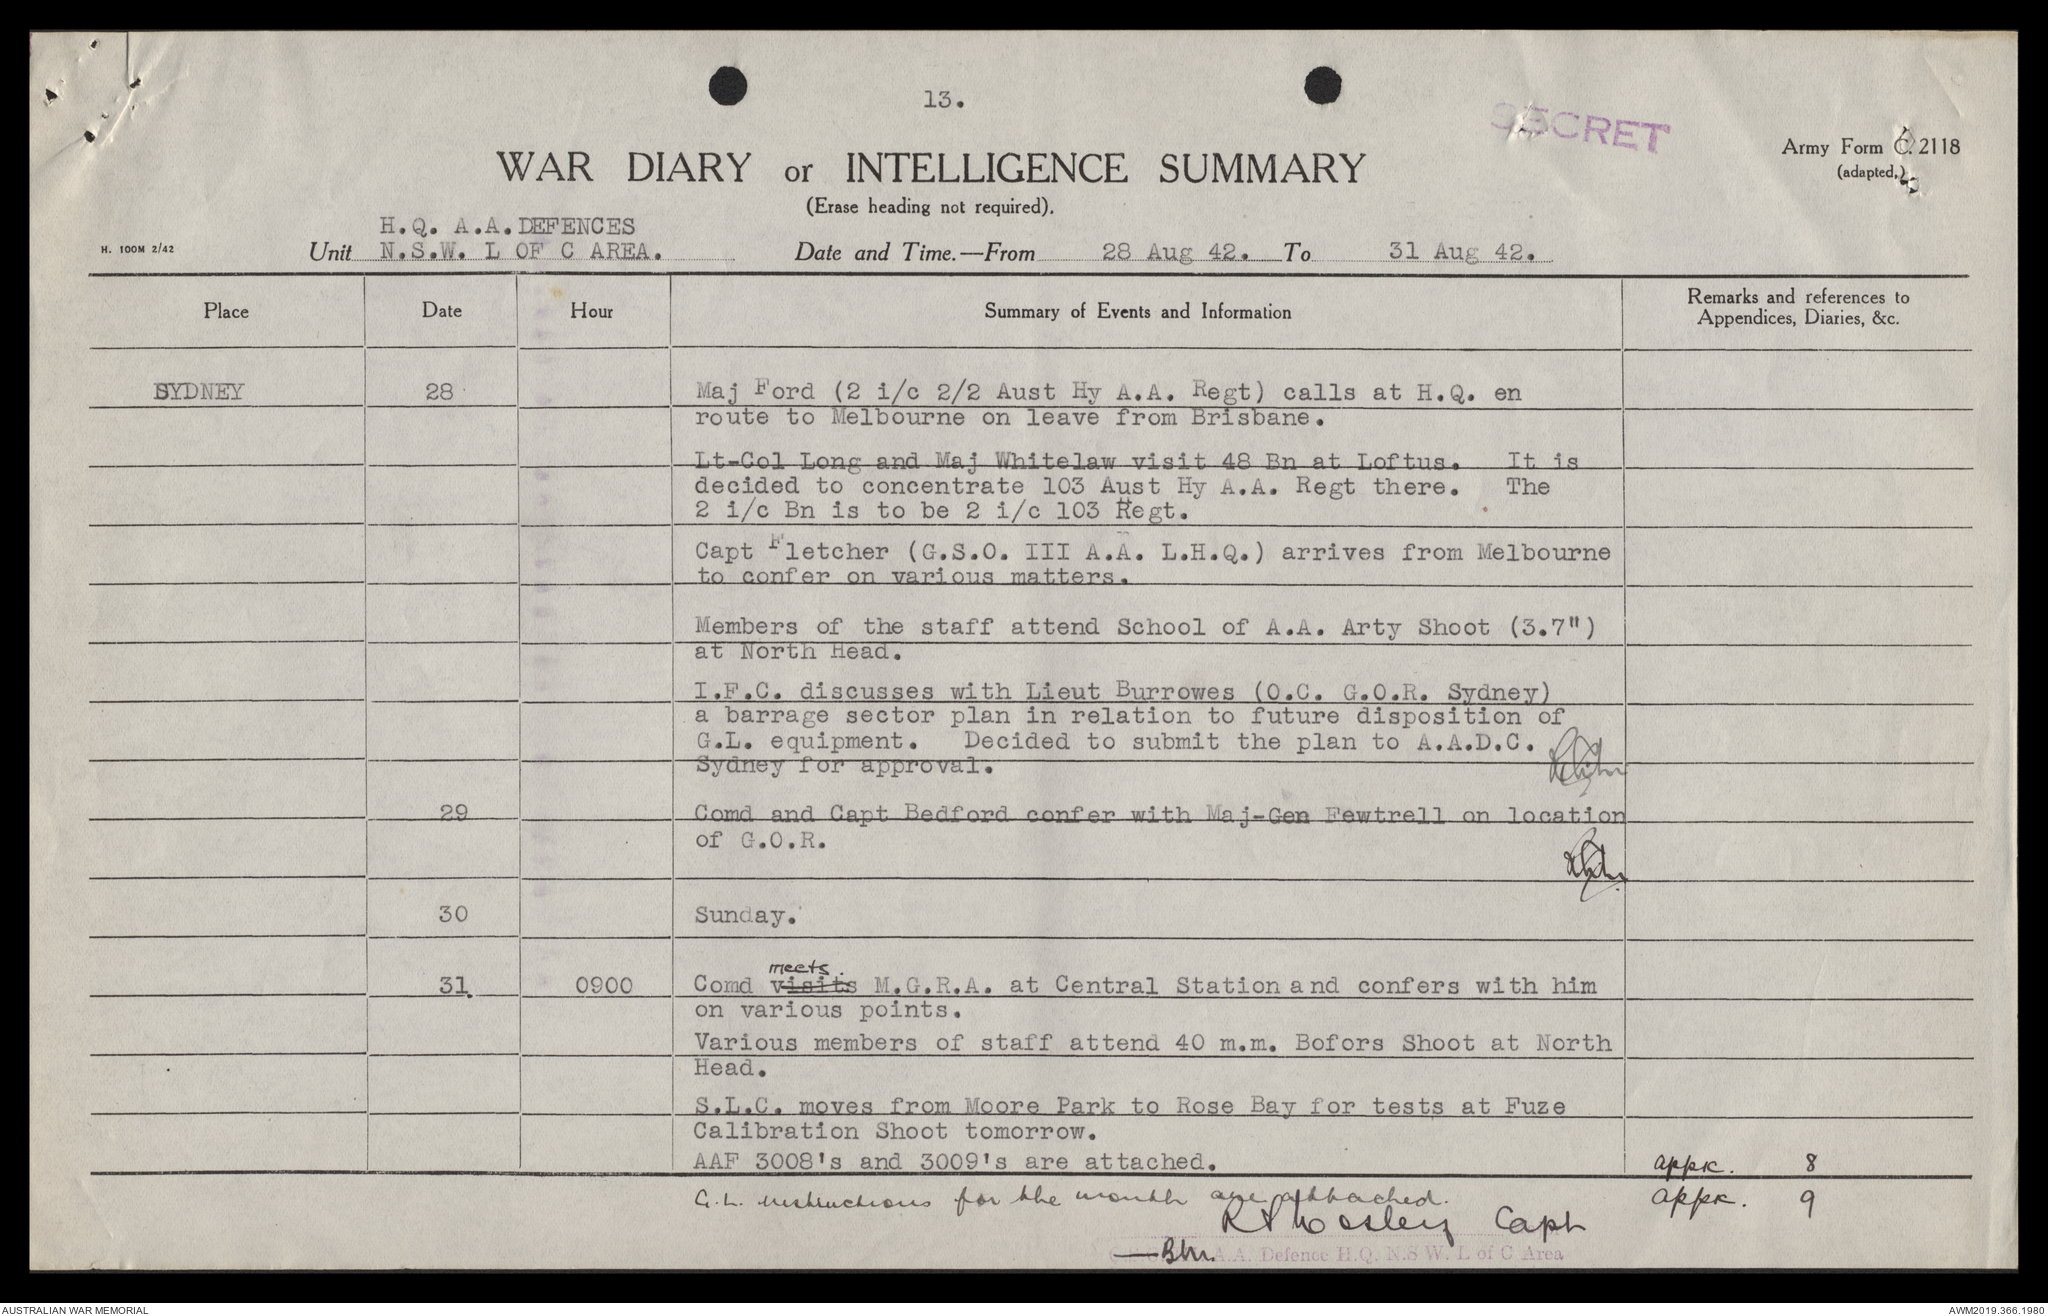 13.
SECRET
Army Form C. 2118
(adapted,)
WAR DIARY or INTELLIGENCE SUMMARY
(Erase heading not required).
H. 100M 2/42
H.Q. A.A.DEFENCES
Unit N.S.W. L OF C AREA.
Date and Time.—From 28 Aug 42. To 31 Aug 42.
Place Date Hour Summary of Events and Information Remarks and references to
Appendices, Diaries, &c.
SYDNEY 28 Maj Ford (2 i/c 2/2 Aust Hy A.A. Regt) calls at H.Q. en
route to Melbourne on leave from Brisbane.
Lt-Col Long and Maj Whitelaw visit 48 Bn at Loftus. It is
decided to concentrate 103 Aust Hy A.A. Regt there. The
2 i/c Bn is to be 2 i/c 103 Regt.
Capt Fletcher (G.S.O. III A.A. L.H.Q.) arrives from Melbourne
to confer on various matters.
Members of the staff attend School of A.A. Arty Shoot (3.7")
at North Head.
I.F.C. discusses with Lieut Burrowes (O.C. G.O.R. Sydney)
a barrage sector plan in relation to future disposition of
G.L. equipment. Decided to submit the plan to A.A.D.C.
Sydney for approval.
29 Comd and Capt Bedford confer with Maj-Gen Fewtrell on location
of G.O.R.
30 Sunday.
meets
31. 0900 Comd visits M.G.R.A. at Central Station and confers with him
on various points.
Various members of staff attend 40 m.m. Bofors Shoot at North
Head.
S.L.C. moves from Moore Park to Rose Bay for tests at Fuze
Calibration Shoot tomorrow.
AAF 3008's and 3009's are attached. appx. 8
G.L. instructions for the month are attached. appx. 9
Capt
A.A. Defence H.Q. N.S.W. L of C Area
AUSTRALIAN WAR MEMORIAL
AWM2019.366.1980